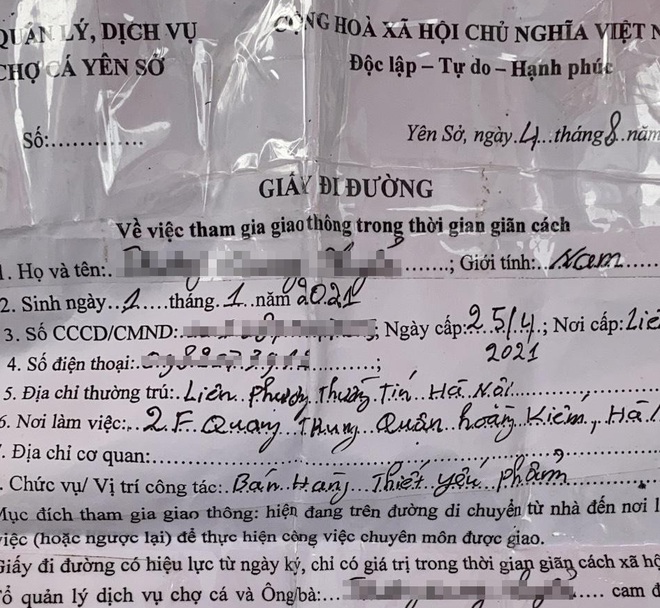 QUẢN LÝ, DỊCH VỤ
CỘNG HOÀ XÃ HỘI CHỦ NGHĨA VIỆT N
CHỢ CÁ YÊN SỞ
Độc lập – Tự do – Hạnh phúc
Số:..............
Yên Sở, ngày.4...tháng 8.năm
GIẤY ĐI ĐƯỜNG
Về việc tham gia giao thông trong thời gian giãn cách
1. Họ và tên: .......; Giới tính: Nam
2. Sinh ngày..1....tháng.1.năm 2021
3. Số CCCD/CMND: ; Ngày cấp: 25/4.; Nơi cấp: Liê
2021
4. Số điện thoại: ;
5. Địa chỉ thường trú: Liên Phương Thường Tín Hà Nội
6. Nơi làm việc: 2.F Quang Trung Quận hoàn Kiếm, Hà
. Địa chỉ cơ quan:
. Chức vụ/ Vị trí công tác: Bán Hàng Thiết yếu phẩm
Mục đích tham gia giao thông: hiện đang trên đường di chuyển từ nhà đến nơi l
việc (hoặc ngược lại) để thực hiện công việc chuyên môn được giao.
Giấy đi đường có hiệu lực từ ngày ký, chỉ có giá trị trong thời gian giãn cách xã hộ
Tổ quản lý dịch vụ chợ cá và Ông/bà:... cam đ